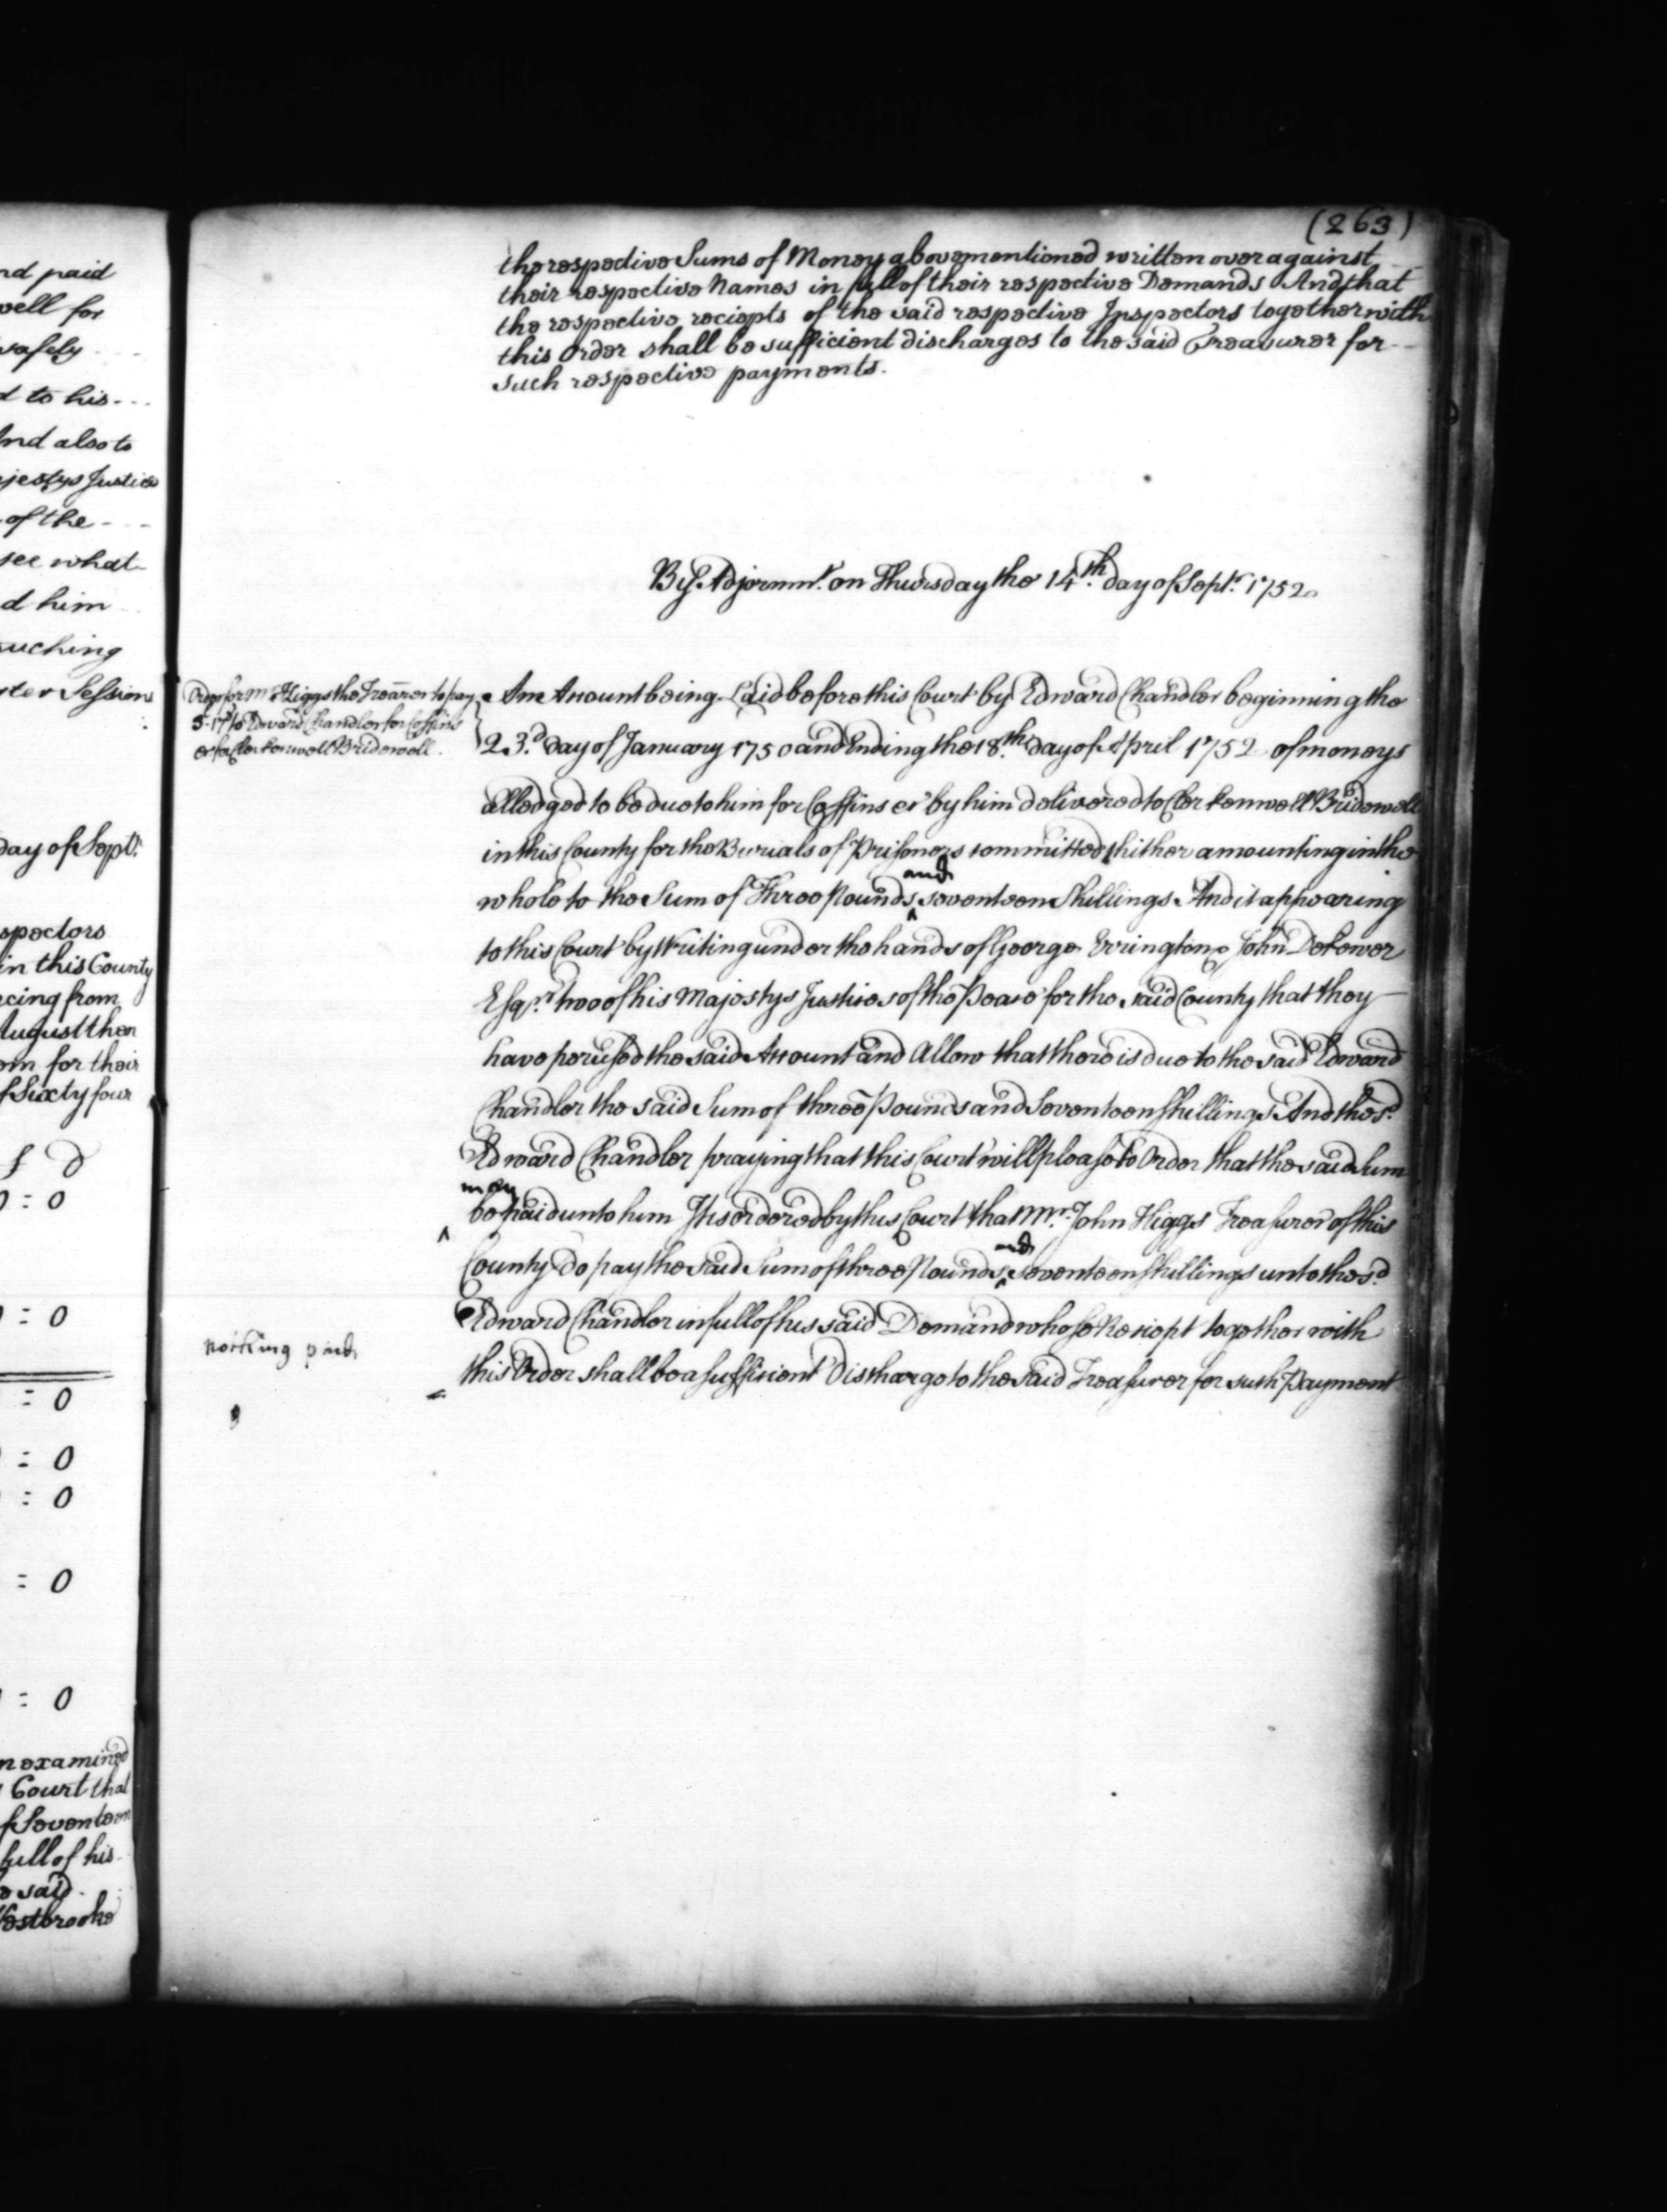 nd paid
well for
safely
d to his
And also to
jestys Justice
of the
see what
d him
ouching
rter Session
day of Sept.r
spectors
in this County
cing from
August then
om for their
f Sixty four
s D
0 : 0
: 0
: 0
: 0
: 0
: 0
: 0
n examined
Court that
f Seventeen
full of his
e said
Westbrooke
(263)
the respective Sums of Money abovementioned written over against
their respective Names in full of their respective Demands And that
the respective reciepts of the said respective Inspectors together with
this Order shall be sufficient discharges to the said Treasurer for
such respective payments.
By Adjornmt. on Thursday the 14th. day of Sept.r 1752
Order for Mr Higgs the Treãrer to pay
3.17 to Edward Chandler for Coffins
&c for Clerkenwell Bridewell.
An Account being Laid before this Court by Edward Chandler beginning the
23.d Day of January 1750 and Ending the 18.th Day of April 1752 of moneys
alledged to be due to him for Coffins &c by him delivered to Clerkenwell Bridewell
in this County for the Burials of Prisoners committed thither amounting in the
whole to the Sum of Three Pounds and seventeen Shillings And it appearing
to this Court by Writing under the hands of George Errington & John DeKewer
Esqrs. two of his Majestys Justices of the Peace for the said County that they
have perused the said Account and Allow that there is due to the said Edward
Chandler the said Sum of three Pounds and Seventeen Shillings And the s.d
Edward Chandler praying that this Court will please to Order that the said Sum
may be paid unto him It is ordered by this Court that Mr. John Higgs Treasurer of this
County Do pay the said Sum of three Pounds and seventeen Shillings unto the s.d
Edward Chandler in full of his said Demand whose Reciept together with
this Order shall be a sufficient Discharge to the said Treasurer for such Payment
nothing paid